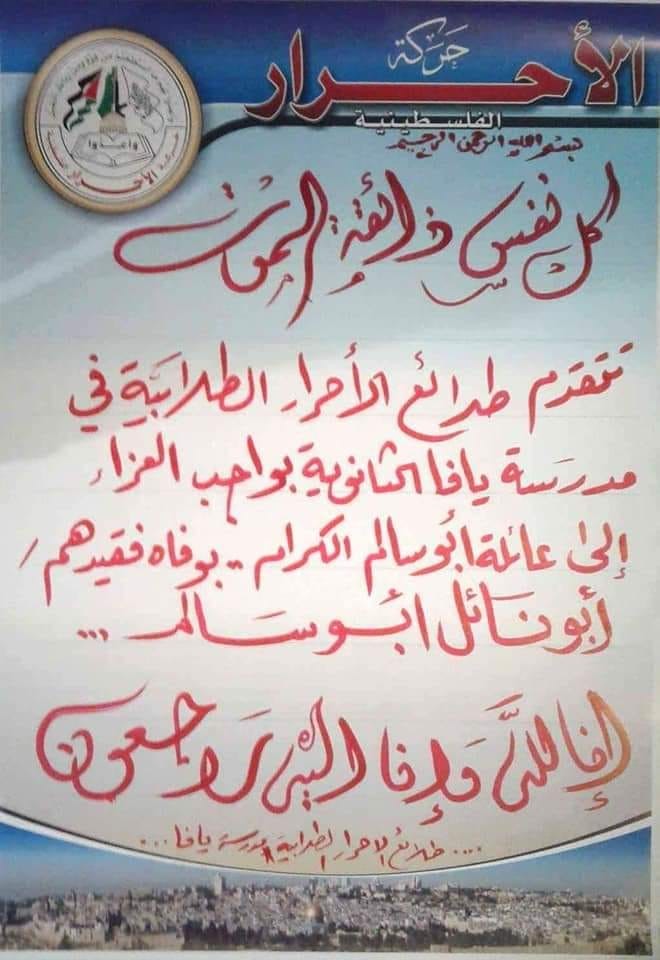 حركة
الأحرار
الفلسطينية
بسم الله الرحمن الرحيم
كل نفس ذائقة الموت
تتقدم طلائع الأحرار الطلابية في
مدرسة يافا الثانوية بواجب العزاء
إلى عائلة أبو سالم الكرام .. بوفاه فقيدهم /
أبو نائل أبو سالم ...
إنا لله وإنا إليه راجعون
... طلائع الاحرار الطلابية مدرسة يافا ...
وأعدوا
حركة الأحرار